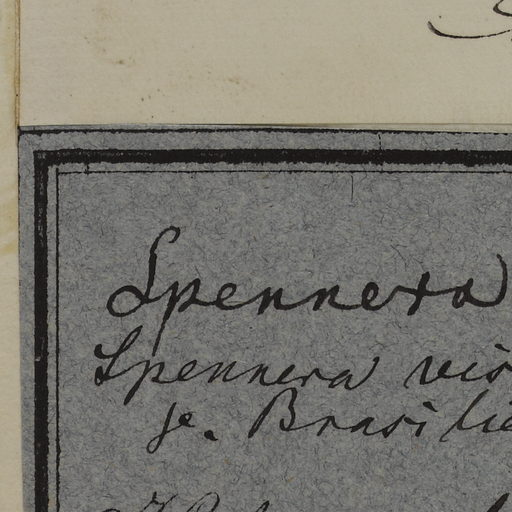 Spennera
Spennera vis
se. Brasilie